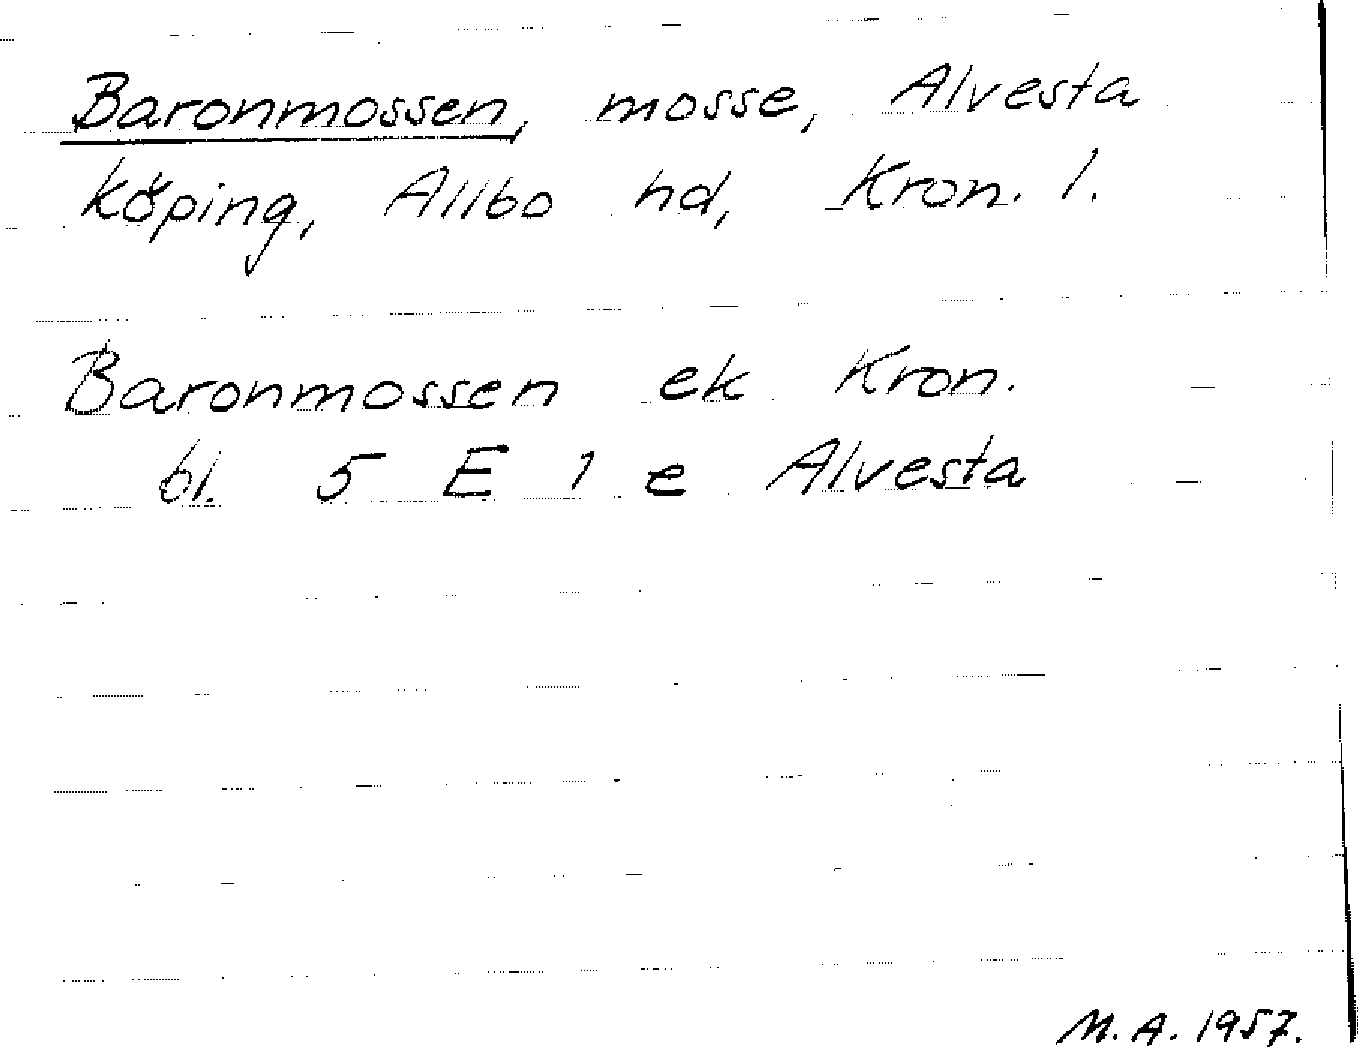 Baronmossen, mosse, Alvesta
köping, Allbo hd, Kron. l.
Baronmossen ek Kron.
bl. 5 E 1 e Alvesta
M.A. 1957.